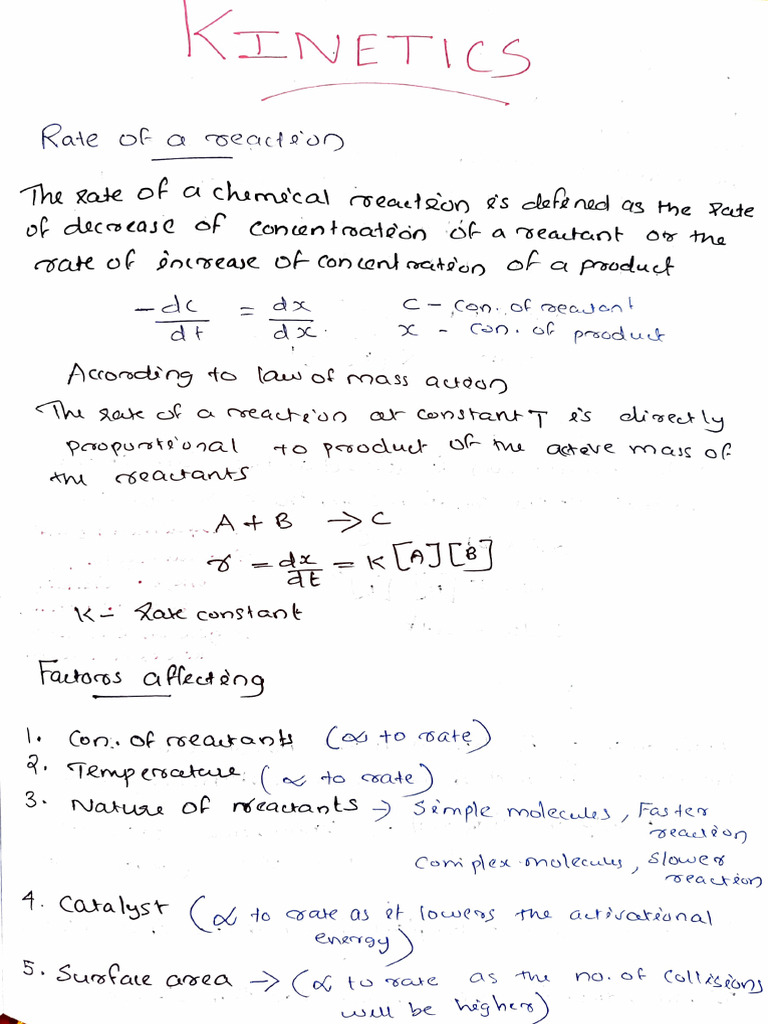 KINETICS
Rate of a reaction
The rate of a chemical reaction is defined as the rate
of decrease of concentration of a reactant or the
rate of increase of concentration of a product
-dc/dt = dx/dx. C - Con. of reactant
x - Con. of product
According to law of mass action
The rate of a reaction at constant T is directly
proportional to product of the active mass of
the reactants
A + B → C
r = dx/dt = K [A] [B]
K - Rate constant
Factors affecting
1. Con. of reactants (∝ to rate)
2. Temperature (∝ to rate)
3. Nature of reactants → Simple molecules, Faster
reaction
Complex molecules, slower
reaction
4. Catalyst (∝ to rate as it lowers the activational
energy)
5. Surface area → (∝ to rate as the no. of collisions
will be higher)